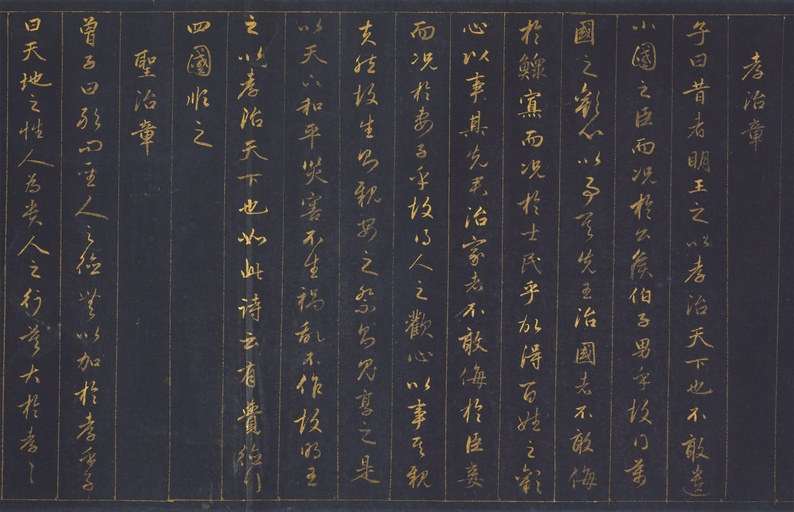 孝治章
子曰昔者明王之以孝治天下也不敢遺
小國之臣而況於公侯伯子男乎故得萬
國之歡心以事其先王治國者不敢侮
於鰥寡而況於士民乎故得百姓之歡
心以事其先君治家者不敢侮於臣妾
而況於妻子乎故得人之歡心以事其親
夫然故生則親安之祭則鬼享之是
以天下和平災害不生禍亂不作故明王
之以孝治天下也如此詩云有覺德行
四國順之
聖治章
曾子曰敢問聖人之德無以加於孝乎子
曰天地之性人為貴人之行莫大於孝〻